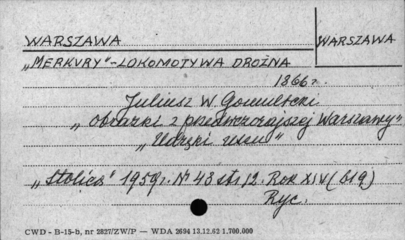 WARSZAWA
WARSZAWA
„MERKURY"-LOKOMOTYWA DROŻNA
1866 r.
Juliusz W. Gomulicki
„Obrazki z przedwczorajszej Warszawy"
„
"
„Stolica" 1959 r. Nr 43 str. 12. Rok XIV (619)
Ryc.
CWD - B-15-b, nr 2827/ZW/P — WDA 2694 13.12.62 1.700.000